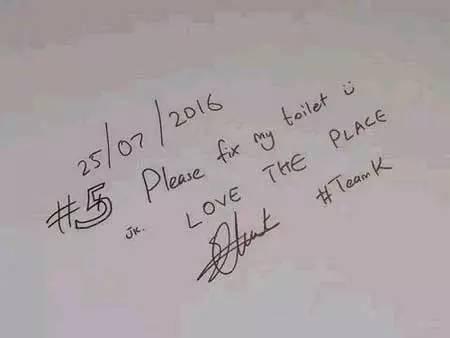 25/07/2016
#5 Please fix my toilet ü
JK. LOVE THE PLACE
#TeamK